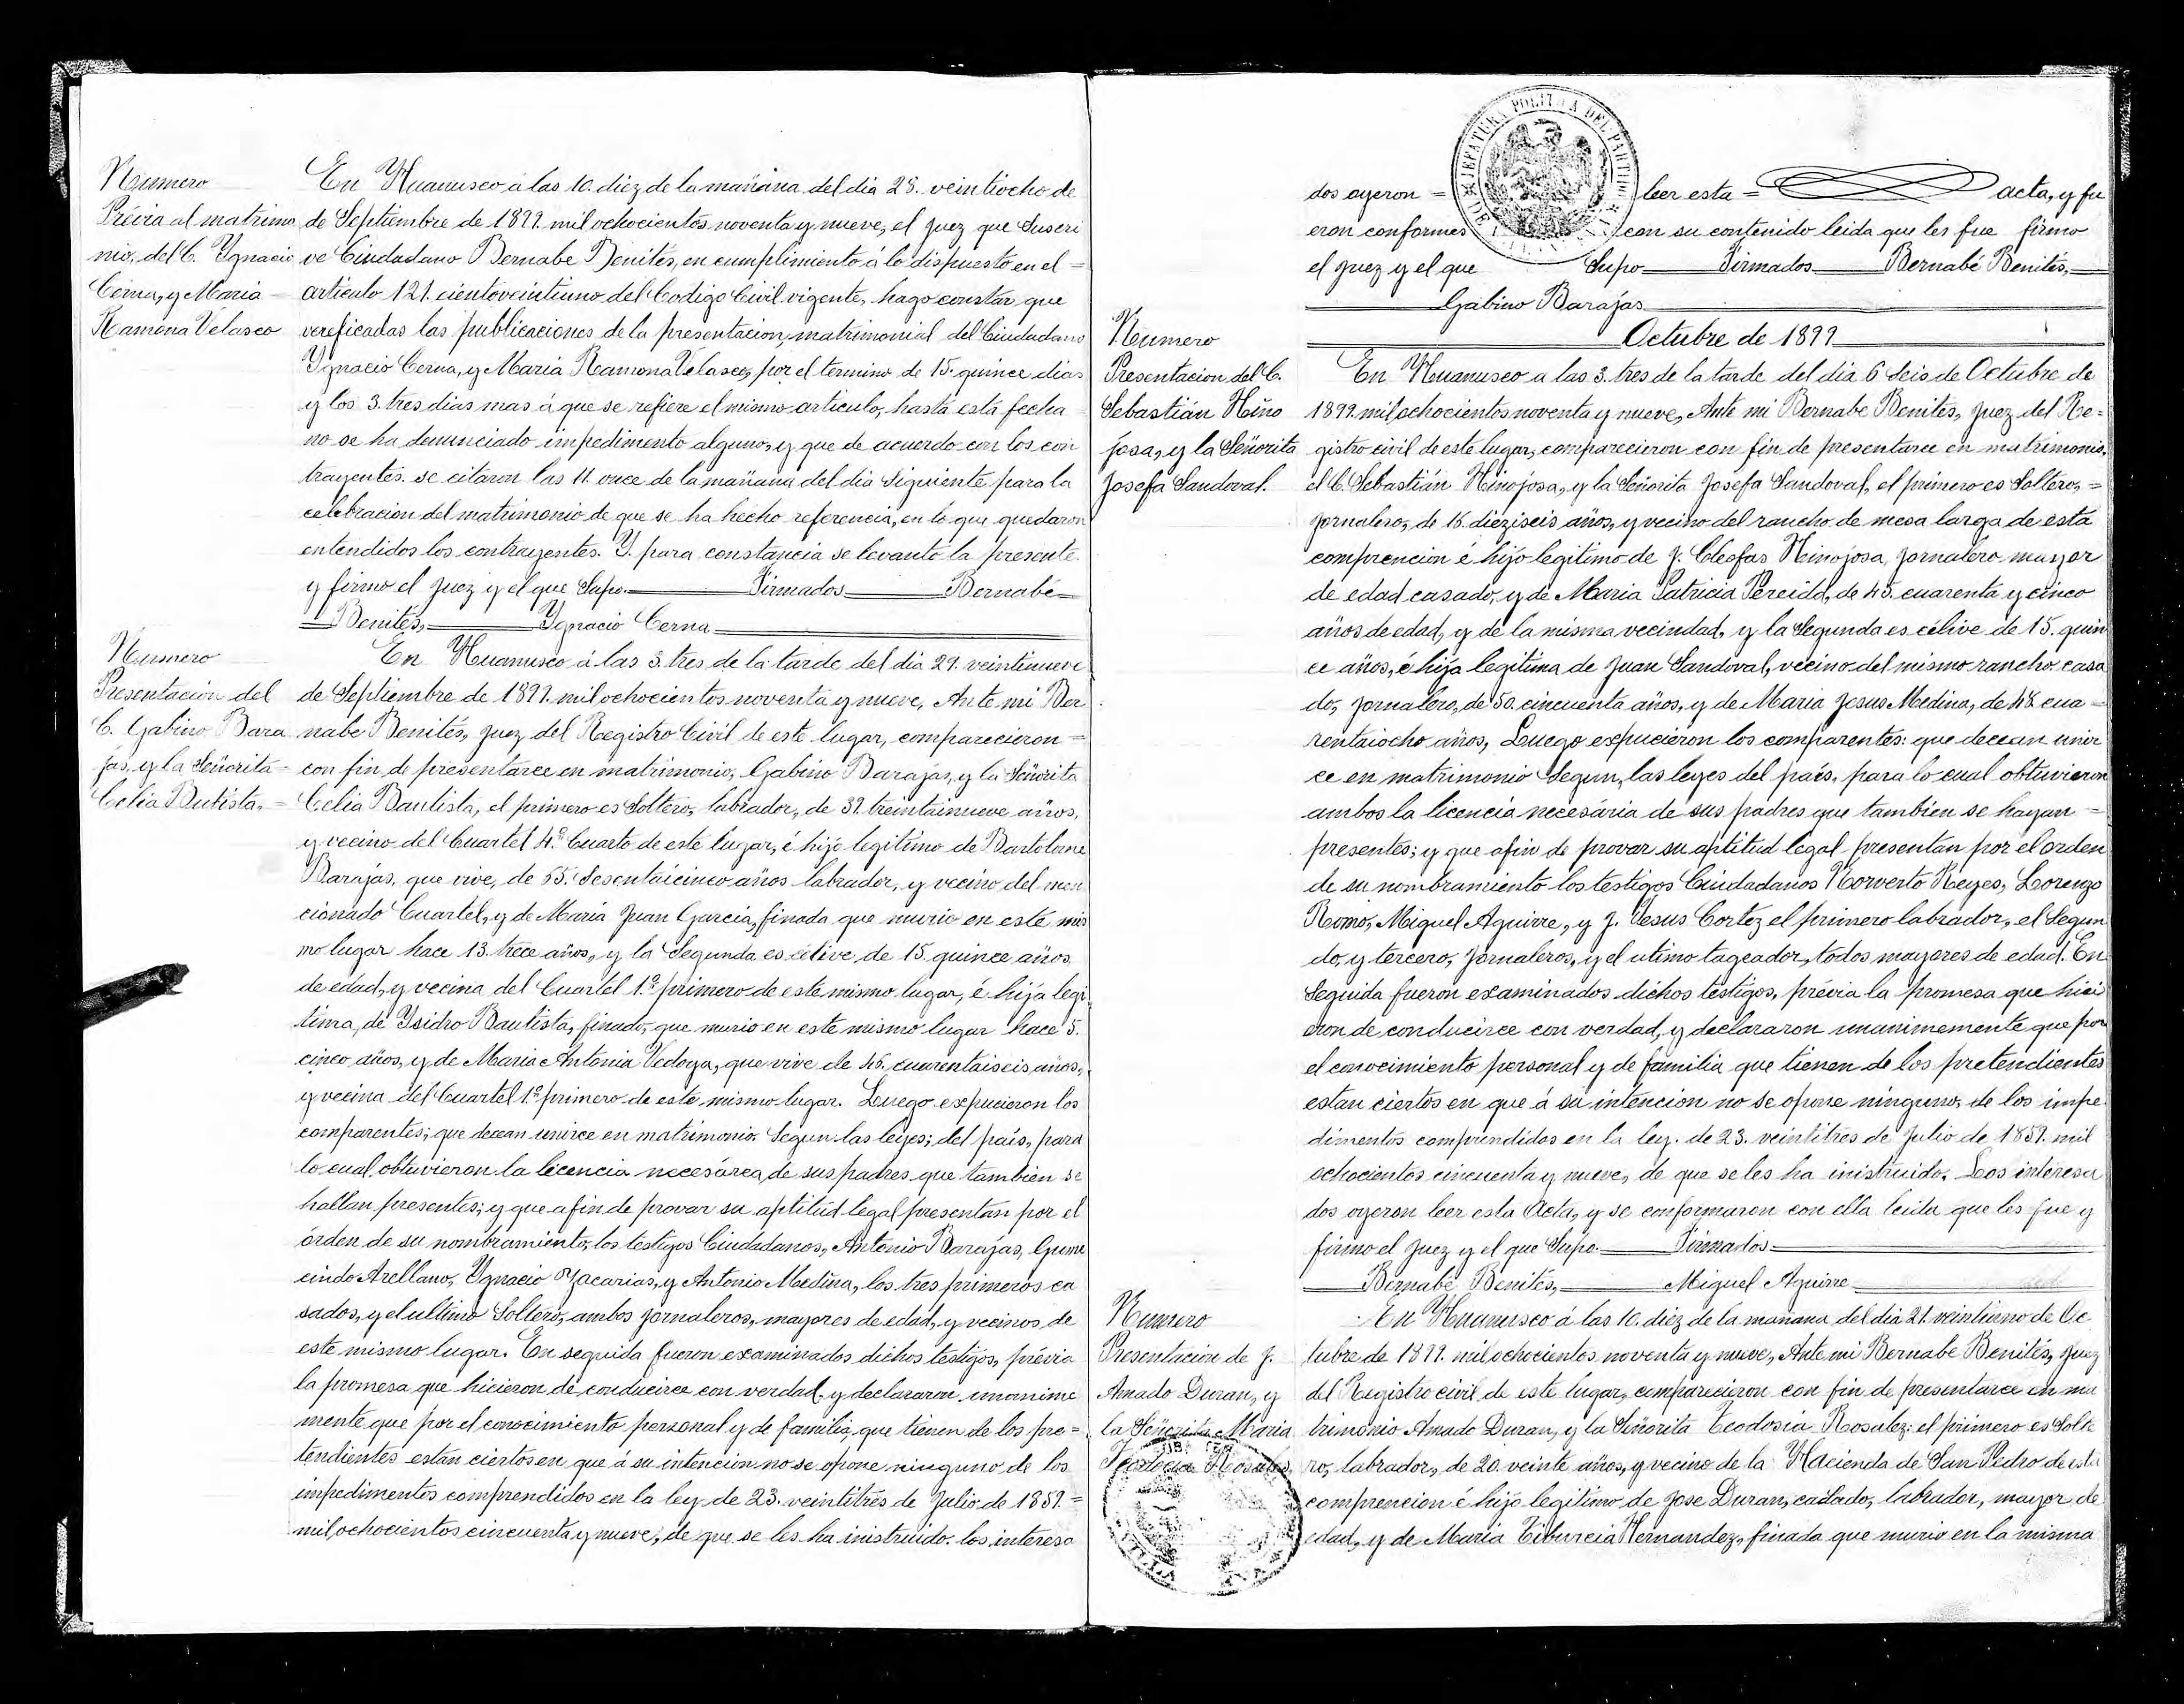 Numero
Prévia al matrimo
nio, del C. Ygnacio
Cerna, y Maria
Ramona Velasco
En Huanusco á las 10. diez de la mañana del dia 28. veintiocho de
de Septiembre de 1899. mil ochocientos noventa y nueve, el Juez que Suscri
ve Ciudadano Bernabe Benites, en cumplimiento á lo dispuesto en el =
articulo 121. cientoveintiuno del Codigo Civil vigente, hago constar que
vereficadas las publicaciones de la presentacion, matrimonial del Ciudadano
Ygnacio Cerna, y Maria Ramona Velasco, por el termino de 15. quince dias
y los 3. tres dias mas á que se refiere el mismo articulo, hasta esta fecha
no se ha denunciado impedimento alguno, y que de acuerdo con los con
trayentes. se citaron las 11. once de la mañana del dia Siguiente para la
celebracion del matrimonio de que se ha hecho referencia, en lo que quedaron
entendidos los contrayentes. Y. para constancia se levantó la presente
y firmo el Juez y el que Supo. Firmados Bernabé
Benites, Ygnacio Cerna
Numero
Presentación del
C. Gabino Bara
jas, y la Señorita =
Celia Butista. =
En Huanusco á las 3. tres de la tarde del dia 29. veintinueve
de Septiembre de 1899. mil ochocientos noventa y nueve, Ante mi Ber
nabe Benités, Juez del Registro Civil de este lugar, comparecieron =
con fin de presentarce en matrimonio, Gabino Barajas, y la Señorita
Celia Bautista, el primero es Soltero, labrador, de 39. treintainueve años,
y vecino del Cuartel 4º Cuarto de este lugar, é hijo legitimo de Bartolome
Barajas, que vive, de 65. Sesentaicinco años labrador, y vecino del men
cionado Cuartel, y de María Juan Garcia, finada que murio en este mis
mo lugar hace 13. trece años, y la Segunda es celive de 15 quince años
de edad, y vecina del Cuartel 1º primero de este mismo lugar, é hija legi
tima, de Ysidro Bautista, finado, que murio en este mismo lugar hace 5.
cinco años, y de Maria Antonia Vedoya, que vive de 46. cuarentaiseis años,
y vecina del Cuartel 1º primero de este mismo lugar. Luego expucieron los
comparentes; que decean unirce en matrimonio. Segun las leyes; del país, para
lo cual obtuvieron la licencia necesárea, de sus padres que tambien se
hallan presentes; y que afin de provar su aptitud legal presentan por el
órden de su nombramiento, los testigos Ciudadanos, Antonio Barajas, Gume
cindo Arellano, Ygnacio Zacarias, y Antonio Medina, los tres primeros ca
sados, y el ultimo Soltero, ambos jornaleros, mayores de edad, y vecinos de
este mismo lugar. En seguida fueron examinados dichos testigos, prévia
la promesa que hicieron de conducirce con verdad, y declararon unanime
mente que por el conocimiento personal y de familia, que tienen de los pre=
tendientes están ciertos en que á su intencion no se opone ninguno de los
impedimentos comprendidos en la ley de 23. veintitrés de Julio de 1859. =
mil ochocientos cincuenta y nueve, de que se les ha inistruido. los interesa
JEFATURA POLITICA DEL PARTIDO DE
dos oyeron = leer esta = acta, y fu
eron conformes con su contenido leida que les fue firmo
el Juez y el que Supo Firmados Bernabé Benites,
Gabino Barajas
Octubre de 1899
Numero
Presentacion del C.
Sebastián Hino
josa, y la Señorita
Josefa Sandoval.
En Huanusco a las 3. tres de la tarde del dia 6 Seis de Octubre de
1899. mil ochocientos noventa y nueve, Ante mi Bernabe Benites, Juez del Re=
gistro civil de este lugar, comparecieron con fin de presentarce en matrimonio,
el C. Sebastián Hinojosa, y la Señorita Josefa Sandoval, el primero es Soltero, =
jornalero, de 16. dieziseis años, y vecino del rancho de mesa larga de esta
comprencion é hijo legitimo de J. Cleofas Hinojosa, jornalero mayor
de edad casado, y de Maria Patricia Pereida, de 45. cuarenta y cinco
años de edad, y de la misma vecindad, y la Segunda es célive de 15. quin
ce años, é hija legitima de Juan Sandoval, vecino del mismo rancho casa
do, jornalero, de 50. cincuenta años, y de Maria Jesus Medina, de 48 cua =
rentaiocho años, Luego expucieron los comparentes: que decean unir
ce en matrimonio Segun, las leyes del país, para lo cual obtuvieron
ambos la licencia necesária de sus padres que tambien se hayan =
presentes; y que afin de provar su aptitud legal presentan por el orden
de su nombramiento los testigos Ciudadanos Norverto Reyes, Lorenzo
Romo, Miguel Aguirre, y J. Jesus Cortez el primero labrador, el Segun
do, y tercero, jornaleros, y el utimo tageador, todos mayores de edad. En
Seguida fueron examinados dichos testigos, prévia la promesa que hici
eron de conducirce con verdad, y declararon unanimemente que por
el conocimiento personal y de familia que tienen de los pretendientes
estan ciertos en que á su intencion no se opone ninguno, de los impe
dimentos comprendidos en la ley. de 23. veintitres de Julio de 1859. mil
ochocientos cincuenta y nueve, de que se les ha inistruido. Los interesa
dos oyeron leer esta Acta, y se conformaron con ella leida que les fue y
firmo el Juez y el que Supo. Firmados
Bernabé Benites, Miguel Aguirre
Numero
Presentacion de J.
Amado Duran, y
la Señorita Maria
Teodocia Rosales
En Huanusco á las 10. diez de la mañana del dia 21. veintiuno de Oc
tubre de 1899. mil ochocientos noventa y nueve, Ante mi Bernabe Benités, Juez
del Registro civil de este lugar, comparecieron con fin de presentarce en ma
trimonio Amado Duran, y la Señorita Teodosia Rosalez: el primero es Solte
ro, labrador, de 20. veinte años, y vecino de la Hacienda de San Pedro de esta
comprencion é hijo legitimo de Jose Duran, casado, labrador, mayor de
edad, y de Maria Tiburcia Hernandez, finada que murio en la misma